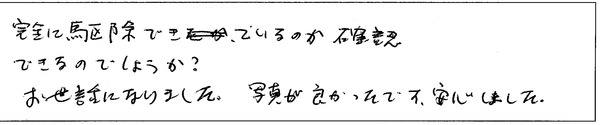 完全に馬区除できているのか確認
できるのでしょうか？
お世話になりました。写真が良かったです、安心しました。